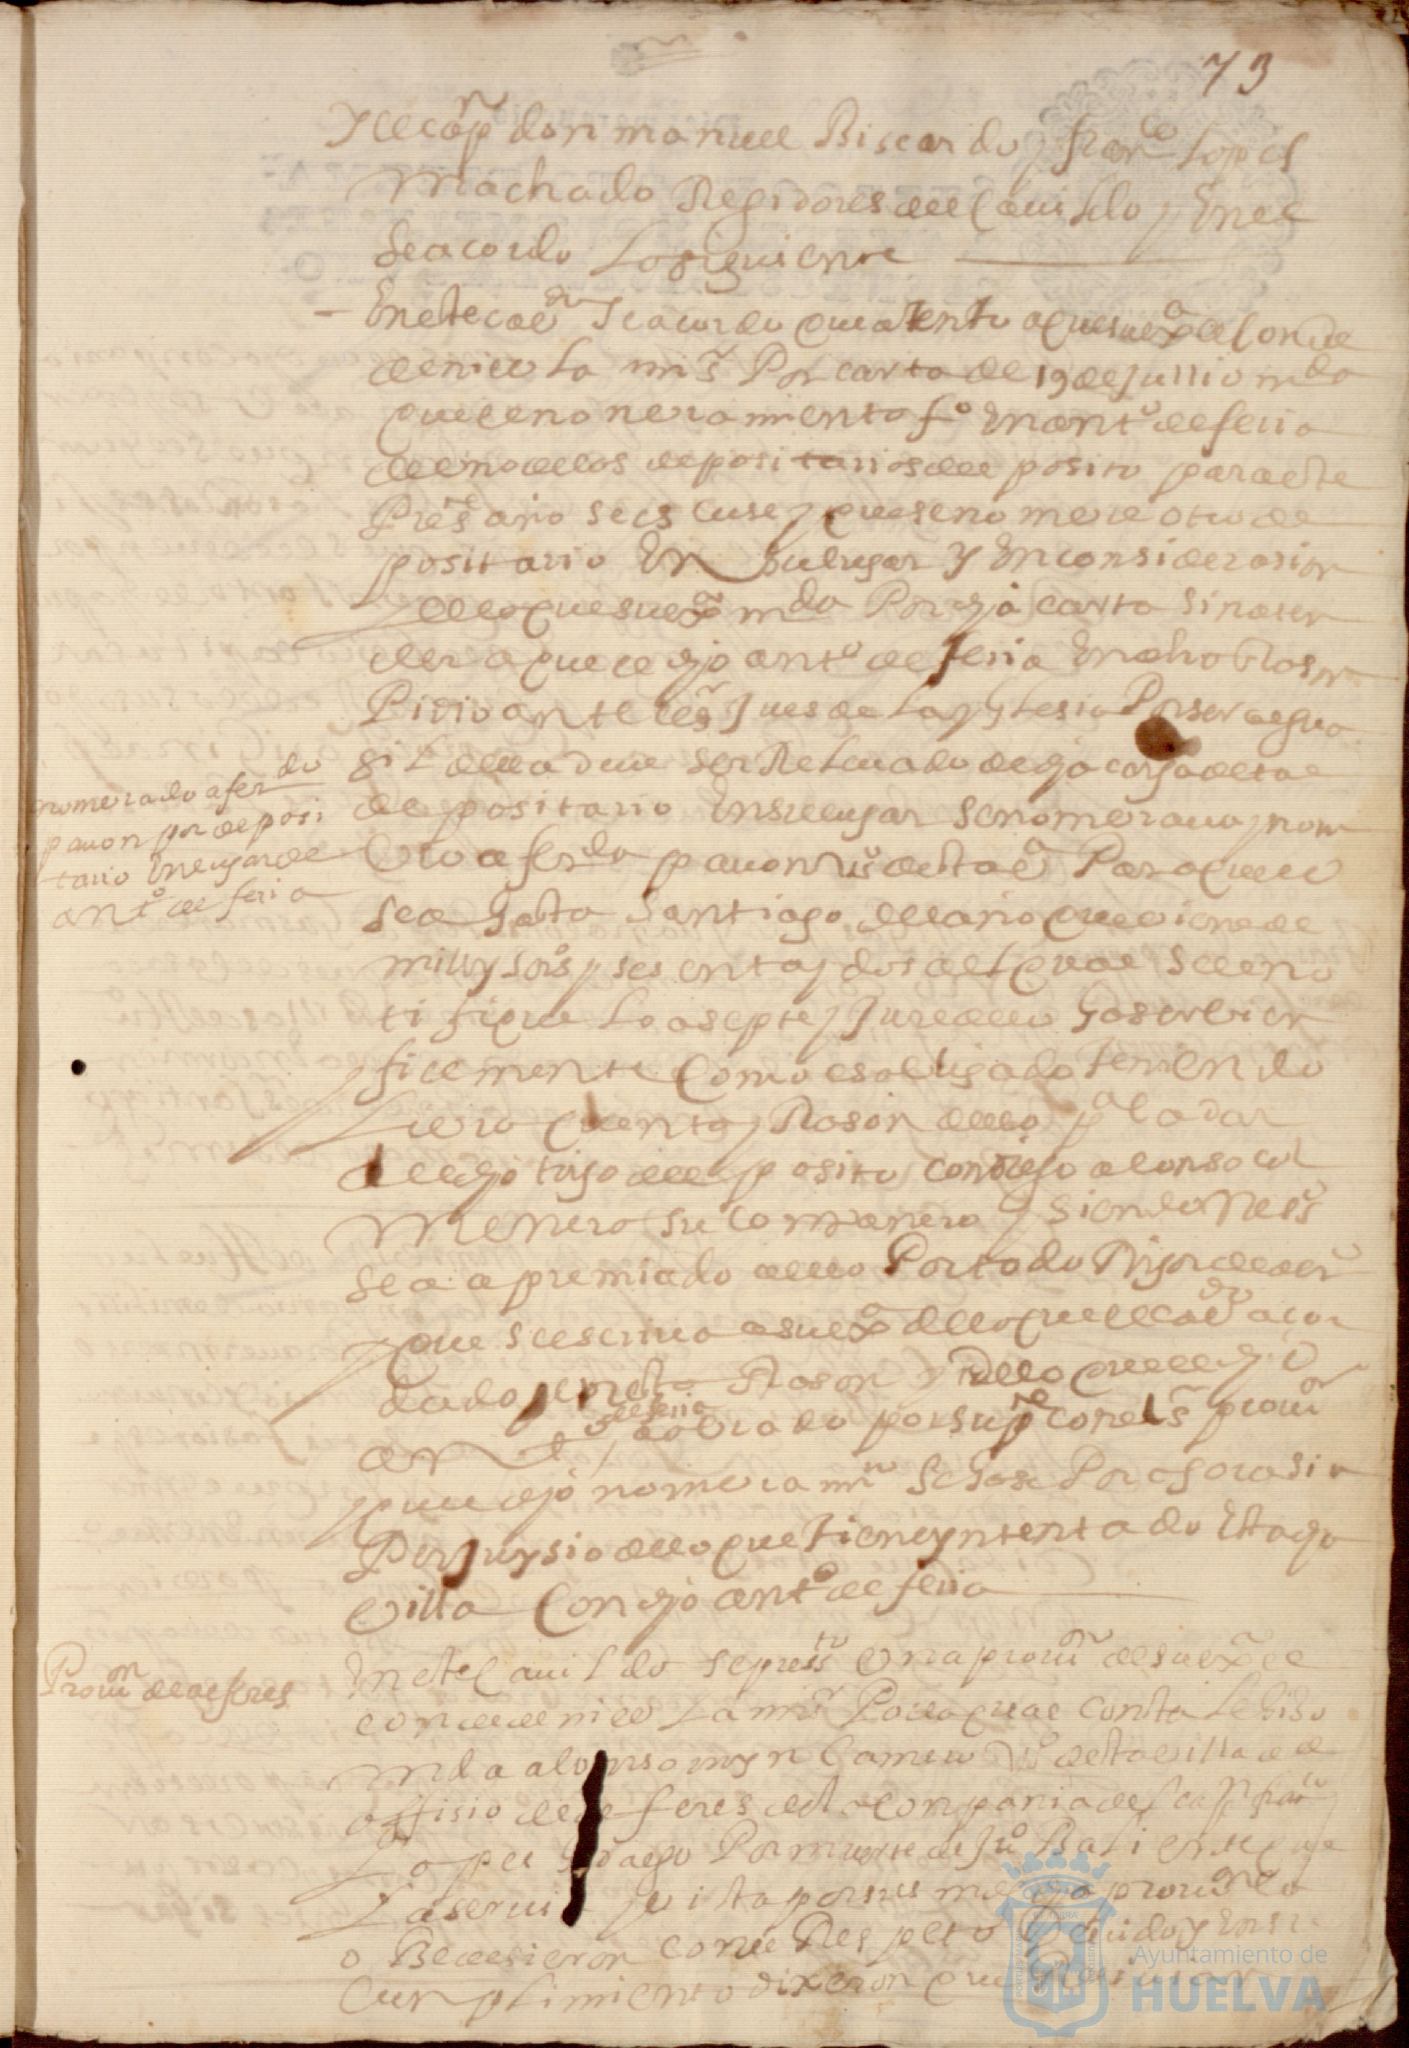 73
Y el cap̃n don manuel Biscardo y fran.co Lopes
machado Regidores del Cauildo y En el
se acordo Lo siguiente
– En este cau.do Se acordo que atento a que su ex.a el Conde
de nieula mi s.r Por carta de 19 de Jullio m.da
que el nonbramiento f.o En ant.o de feria
de uno de los depositarios del posito para este
pres.te año se escuse y que se nombre otro de
positario En su lugar y En considerasion
de lo que su ex.a m.da Por dha carta sin aten
der a que el dho ant.o de feria
Pidio ante el s.r Jues de La yglesia Por ser algua
sil della deue ser Releuado de dho cargo de tal
depositario En su lugar se nombraua y nom
bro a fer.do pauon v.o desta v.a Para que lo
sea hasta Santiago del año que viene de
mill y seis.s y sesenta y dos al qual se le no
tifique Lo asepte y Jure de lo haser bien
fielmente Como es obligado teniendo
Libro quenta y Rason dello p.a la dar
del dho trigo del posito con diego alonso col
menero su compañero y siendo nes.o
sea apremiado a ello Por todo Rigor de der.o
y que se escriua a su ex.a de lo que el cau.do a acor
dado y desta Rason y de lo que el dho
ant.o de feria a obrado por su p.te con el s.r prouis.or
y que dho nombram.to Se hase Por
Perjuysio de lo que tiene yntentado Esta dha
villa Con dho ant.o de feria
nombrado a fer.do
pauon por deposi
tario En lugar de
ant.o de feria
En este Cauildo se presento vna prouis.on de su ex.a el
conde de nieula mi s.r Por la qual consta Le hiso
m.d a alonso myn Camero v.o desta villa de el
offisio de alferes de la compania del cap.n fran.co
Lopes Por muerte de Ju.o Baliente que
La seruia y vista por sus merds dha prouis.on la
o Bedesieron con el Respeto Deuido y En su
Cumplimiento dixeron que
Prouis.on de alferes
Ayuntamiento de
HUELVA